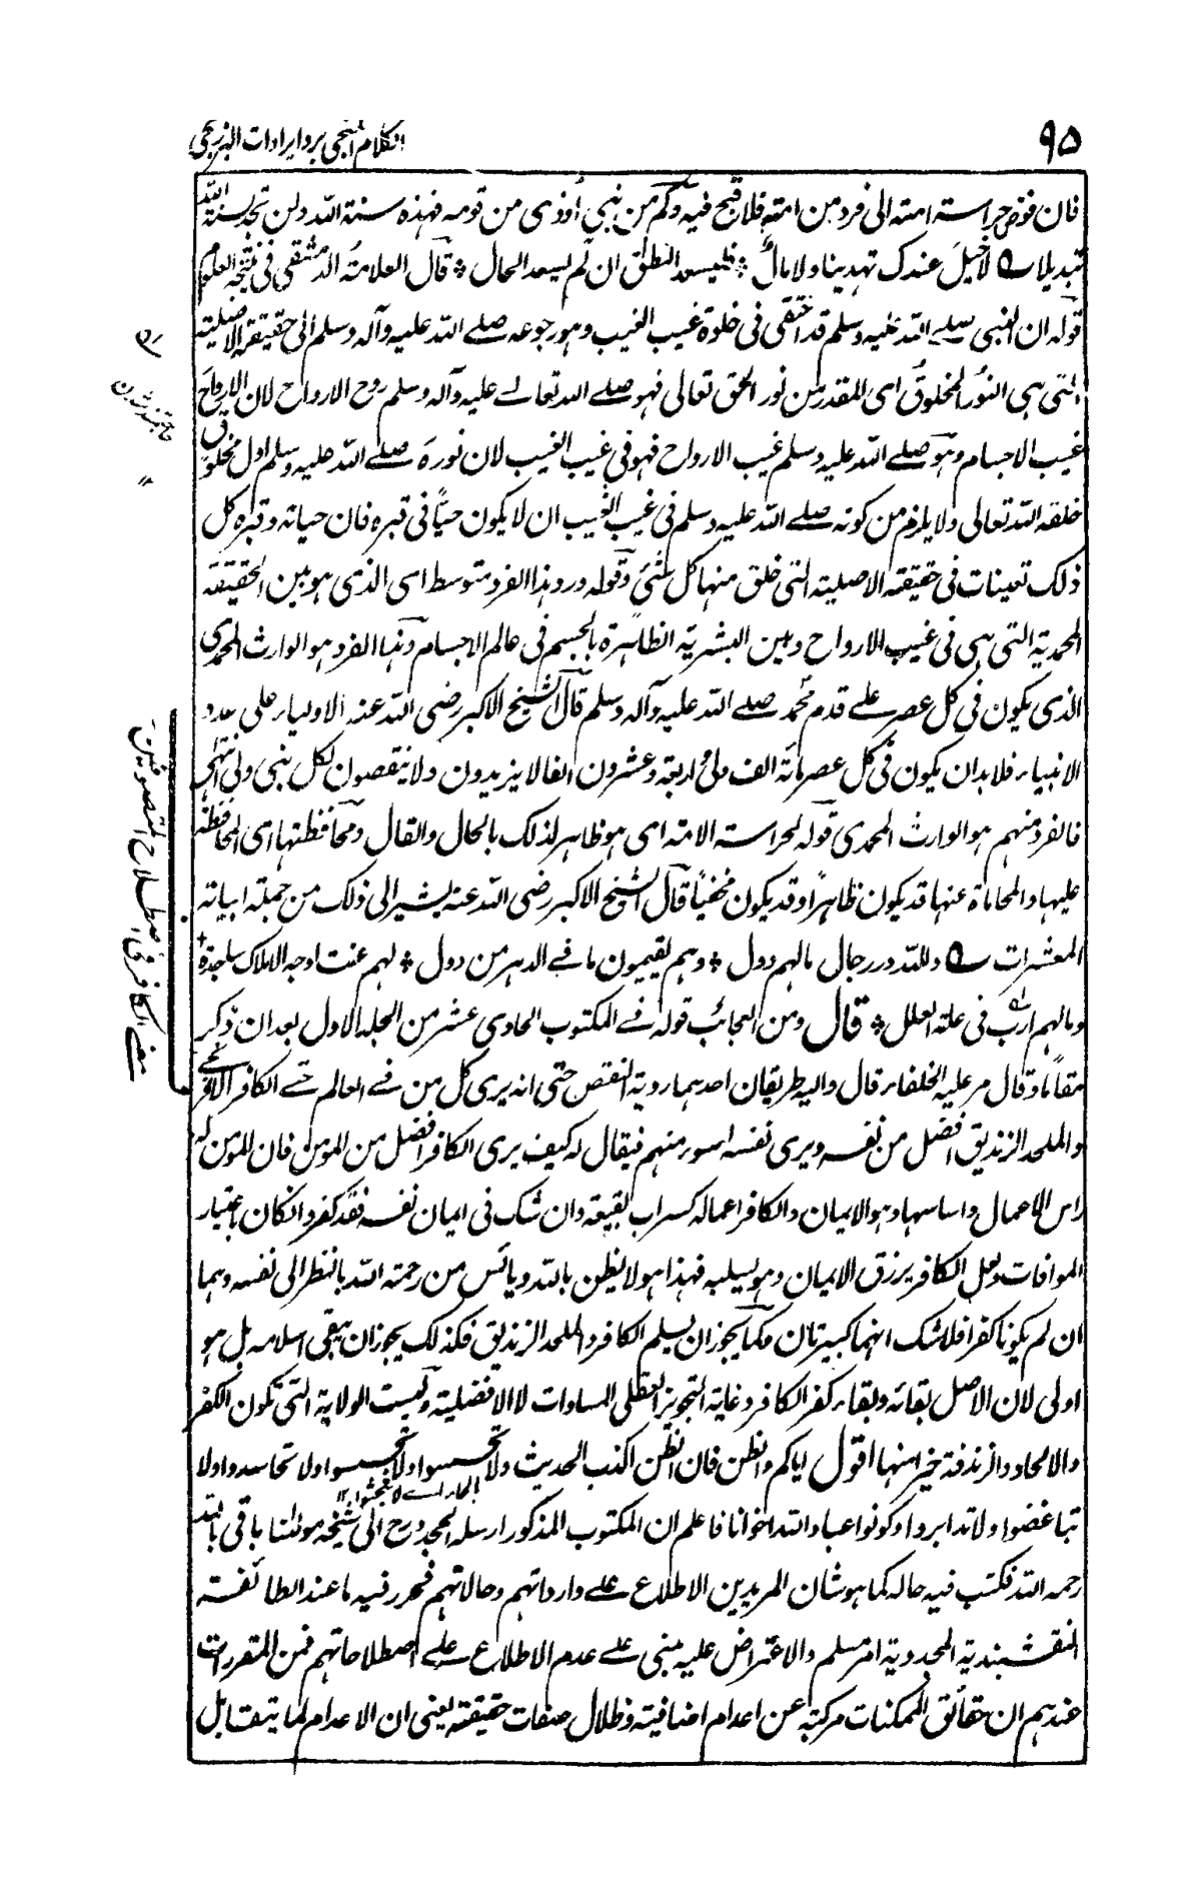 ٩٥
الكلام المنجي برد ايرادات البرزنجي
فان فوض حراسة امته الى فرد من امته فلا قبح فيه وكم من نبي أوذى من قومه فهذه سنة الله ولن تجد لسنة الله
تبديلا لا خيل عندك تهديها ولا مال * فليسعد النطق ان لم يسعد الحال * قال العلامة الدمشقي في نتيجة العلوم
قوله ان النبي صلے اللہ عليه وسلم قد اختفى فى خلوة غيب الغيب وهو رجوعه صلے اللہ عليه وآله وسلم الى حقيقته الاصلية
التى هى النور المخلوق اى المقدر من نور الحق تعالى فهو صلے اللہ تعالے عليه وآله وسلم روح الارواح لان الارواح
غيب الاجسام وهو صلے اللہ عليه وسلم غيب الارواح فهو فى غيب الغيب لان نوره صلے اللہ عليه وسلم اول مخلوق
خلقه الله تعالى ولا يلزم من كونه صلے اللہ عليه وسلم فى غيب الغيب ان لا يكون حيا فى قبره فان حياته وقبره كل
ذلك تعينات فى حقيقته الاصلية التى خلق منها كل شئ وقوله ورد هذا الفرد متوسط اى الذى هو بين الحقيقة
المحمدية التى هى فى غيب الارواح وبين البشرية الظاهرة بالجسم فى عالم الاجسام وهذا الفرد هو الوارث المحمدى
الذى يكون فى كل عصر علے قدم محمد صلے اللہ عليه وآله وسلم قال الشيخ الاكبر رضى الله عنه الاولياء على عدد
الانبياء فلا بد ان يكون فى كل عصر مائة الف ولى واربعة وعشرون الفا لا يزيدون ولا ينقصون لكل نبي ولى انتهى
فالفرد منهم هو الوارث المحمدى قوله لحراسة الامة اى هو ظاهر لذلك بالحال والقال ومحافظتها اى المحافظة
عليها والمحاماة عنها قد يكون ظاهرا وقد يكون مخفيا قال الشيخ الاكبر رضى الله عنه يشير الى ذلك من جملة ابياته
المعشرات وللہ در رجال مالهم دول * وهم يقيمون ما فى الدهر من دول * لهم عنت اوجه الاملاك ساجدة *
وما لهم ارب فى علة العلل * قال ومن العجائب قوله فے المكتوب الحادى عشر من الجلد الاول بعد ان ذكر
مقاما وقال مر عليه الخلفاء قال واليه طريقان احدهما روية النقص حتى انه يرى كل من فے العالم حتے الكافر الافرنجے
والملحد الزنديق افضل من نفسه ويرى نفسه اسوء منهم فيقال له كيف يرى الكافر افضل من المومن فان للمومن له
راس الاعمال واساسها وهو الايمان والكافر اعماله كسراب بقيعة وان شك فى ايمان نفسه فقد كفر وان كان باعتبار
الموافات ولعل الكافر يرزق الايمان وهو يسلبه فهذا هو لا يظن بالله ويائس من رحمة الله بالنظر الى نفسه وهما
ان لم يكونا كفرا فلا شك انهما كبيرتان وكما يجوز ان يسلم الكافر والملحد الزنديق فكذلك يجوز ان يبقى اسلامه بل هو
اولى لان الاصل بقائه وبقاء كفر الكافر وغاية التجويز العقلى المساوات لا الافضلية وليست الولاية التى تكون الكفر
والالحاد والزندقة خير امنها اقول اياكم والظن فان الظن اكذب الحديث ولا تحسسوا ولا تجسسوا ولا تحاسدوا ولا
تباغضوا ولا تدابروا وكونوا عباد الله اخوانا فاعلم ان المكتوب المذكور ارسله المجدد رح الى شيخه مولٰنا باقى بالله
رحمه الله فكتب فيه حاله كما هو شان المريدين الاطلاع علے وارداتهم وحالاتهم فحرر فيه ما عند الطائفة
النقشبندية المجددية امر مسلم والاعتراض عليه مبنى علے عدم الاطلاع علے اصطلاحاتهم فمن المقررات
عندهم ان حقائق الممكنات مركبة عن اعدام اضافية وظلال صفات حقيقة يعنى ان الاعدام لما يتقابل
معنے الكافر فى اصطلاح المتصوفين